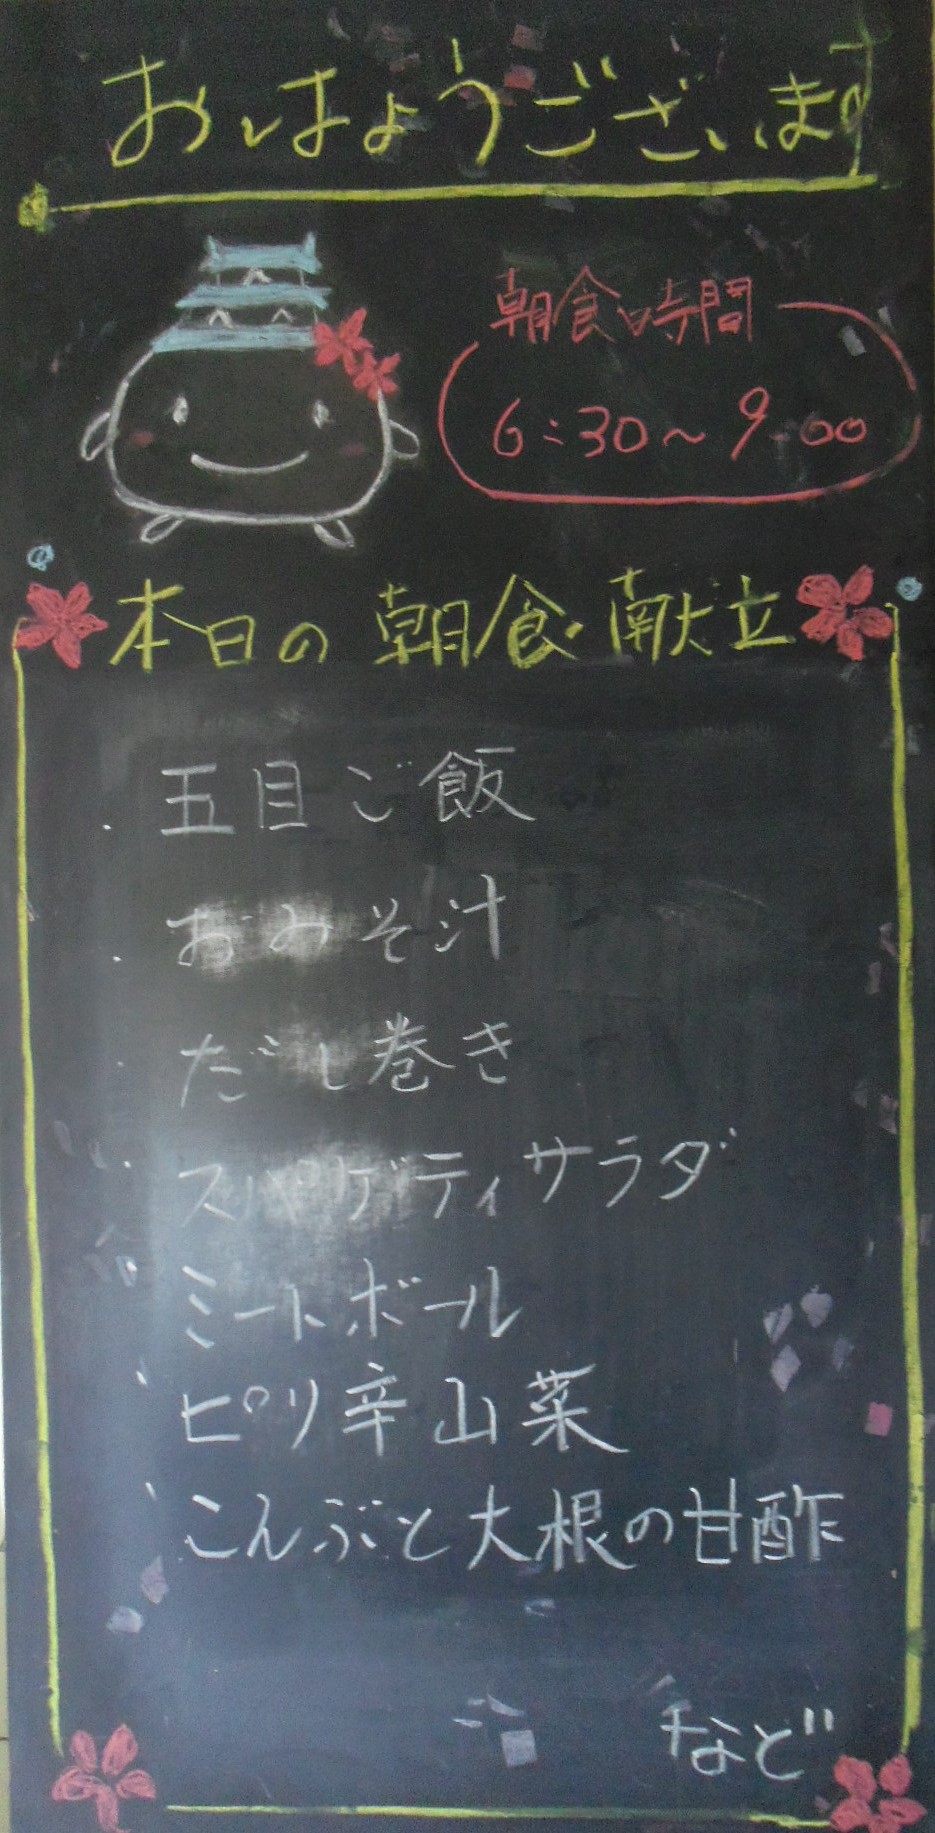 おはようございます
朝食時間
6:30～9:00
本日の朝食献立
・五目ご飯
・おみそ汁
・だし巻き
・スパゲティサラダ
・ミートボール
・ピリ辛山菜
・こんぶと大根の甘酢
など